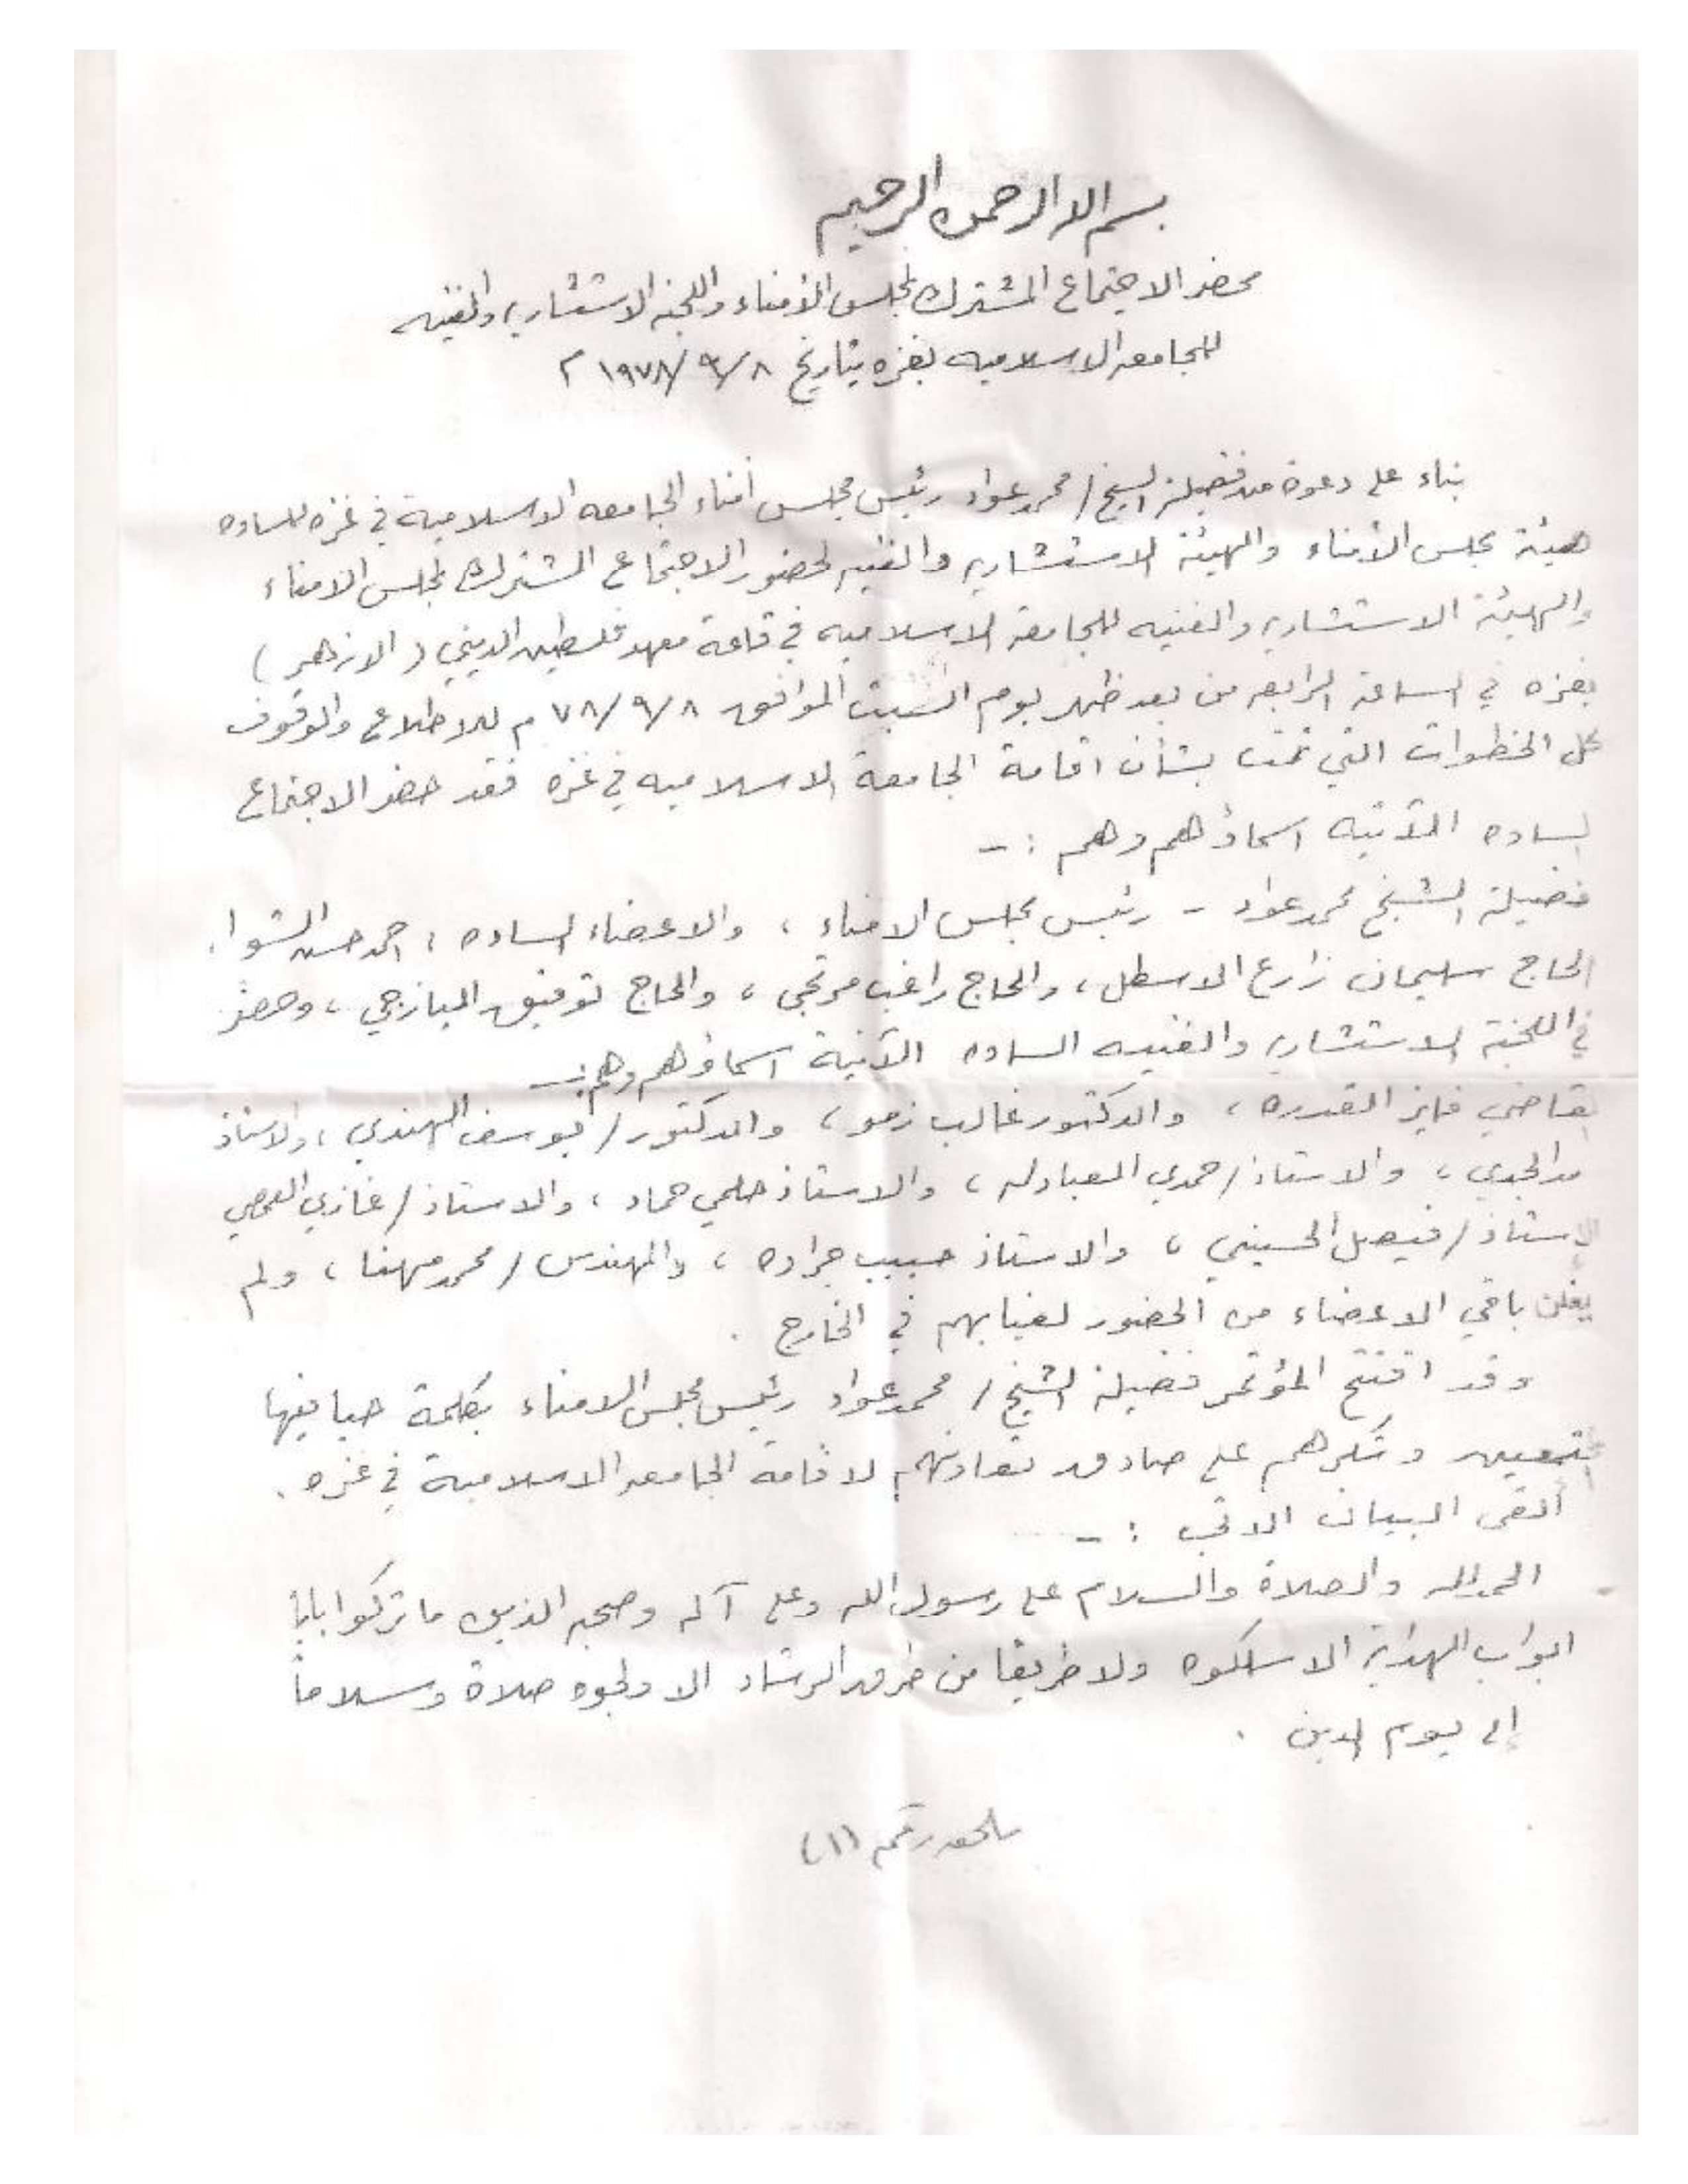 بسم الله الرحمن الرحيم
محضر الاجتماع المشترك لمجلس الأمناء واللجنه الاستشاريه والفنيه
للجامعه الاسلاميه بغزه بتاريخ ٨/٩/١٩٧٨ م
بناء على دعوة من فضيلة الشيخ/ محمد عواد رئيس مجلس أمناء الجامعه الاسلامية في غزه للساده
هيئة مجلس الأمناء والهيئة الاستشاريه والفنيه لحضور الاجتماع المشترك لمجلس الامناء
والهيئة الاستشاريه والفنيه للجامعة الاسلاميه في قاعة معهد فلسطين الديني (الازهر)
بغزه في الساعة الرابعه من بعد ظهر يوم السبت الموافق ٨/٩/٧٨ م للاطلاع والوقوف
على الخطوات التي تمت بشأن اقامة الجامعة الاسلاميه في غزه فقد حضر الاجتماع
الساده الآتيه اسماؤهم وهم :-
فضيلة الشيخ محمد عواد - رئيس مجلس الامناء ، والاعضاء الساده ، احمد حسن الشوا .
الحاج سليمان زارع الاسطل ، والحاج راغب مرتجى ، والحاج توفيق اليازجي ، وحضر
في اللجنة الاستشاريه والفنيه الساده الآتية اسماؤهم وهم :-
القاضي فايز القدره ، والدكتور غالب زمو ، والدكتور/ يوسف الهندي ، والاستاذ
المجدي ، والاستاذ/ حمدي العبادله ، والاستاذ حلمي حماد ، والاستاذ/ غازي
الاستاذ/ فيصل الحسيني ، والاستاذ حبيب جراده ، والمهندس/ محمد مهنا ، ولم
باقي الاعضاء من الحضور لغيابهم في الخارج .
وقد افتتح المؤتمر فضيلة الشيخ/ محمد عواد رئيس مجلس الامناء بكلمة حيا فيها
المجتمعين وشكرهم على صادق تعاونهم لاقامة الجامعه الاسلامية في غزه .
ألقى البيان الاتي :-
الحمد لله والصلاة والسلام على رسول الله وعلى آله وصحبه الذين ما تركوا باباً
ابواب الهداية الا سلكوه ولا طريقا من طرق الرشاد الا ولجوه صلاة وسلاماً
إلى يوم الدين .
ملحق رقم (١)